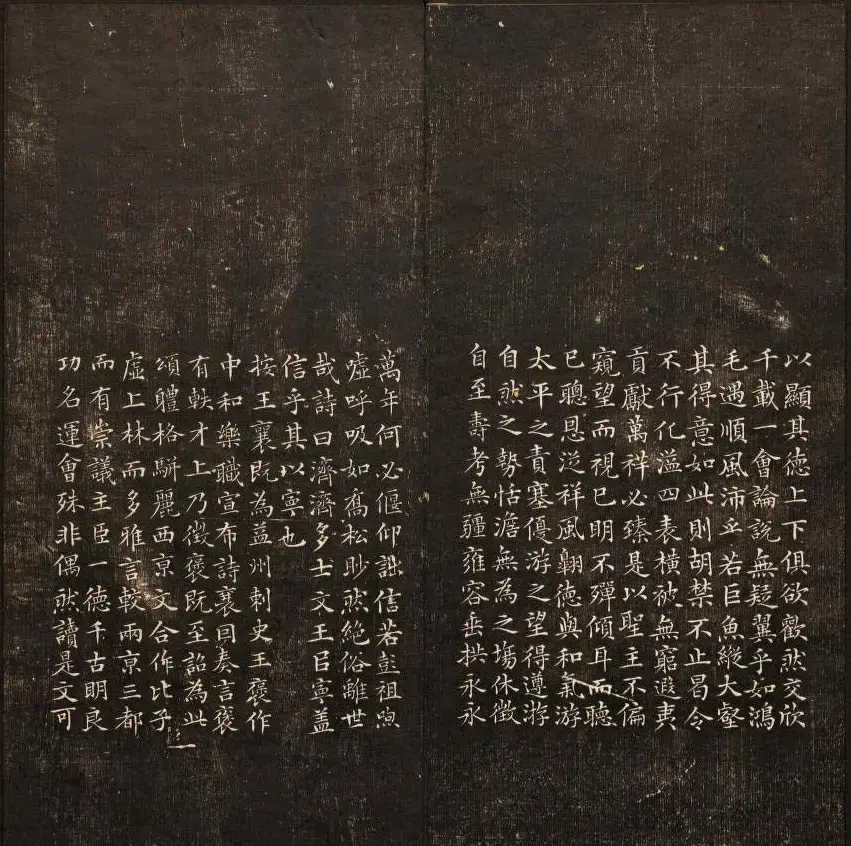 以顯其德上下俱欲歡然交欣
千載一會論說無疑翼乎如鴻
毛遇順風沛乎若巨魚縱大壑
其得意如此則胡禁不止曷令
不行化溢四表橫被無窮遐夷
貢獻萬祥必臻是以聖主不偏
窺望而視已明不殫傾耳而聽
已聰恩從祥風翱德與和氣游
太平之責塞優游之望得遵游
自然之勢恬澹無為之場休徵
自至壽考無疆雍容垂拱永永
萬年何必偃仰詘信若彭祖喣
噓呼吸如喬松眇然絕俗離世
哉詩曰濟濟多士文王㠯寧盖
信乎其以寧也
按王襄既為益州刺史王褒作
中和樂職宣布詩襄因奏言褒
有軼才上乃徵褒既至詔為此
頌體格駢麗西京文合作比子
虛上林而多雅言較兩京三都
而有崇議主臣一德千古明良
功名運會殊非偶然讀是文可